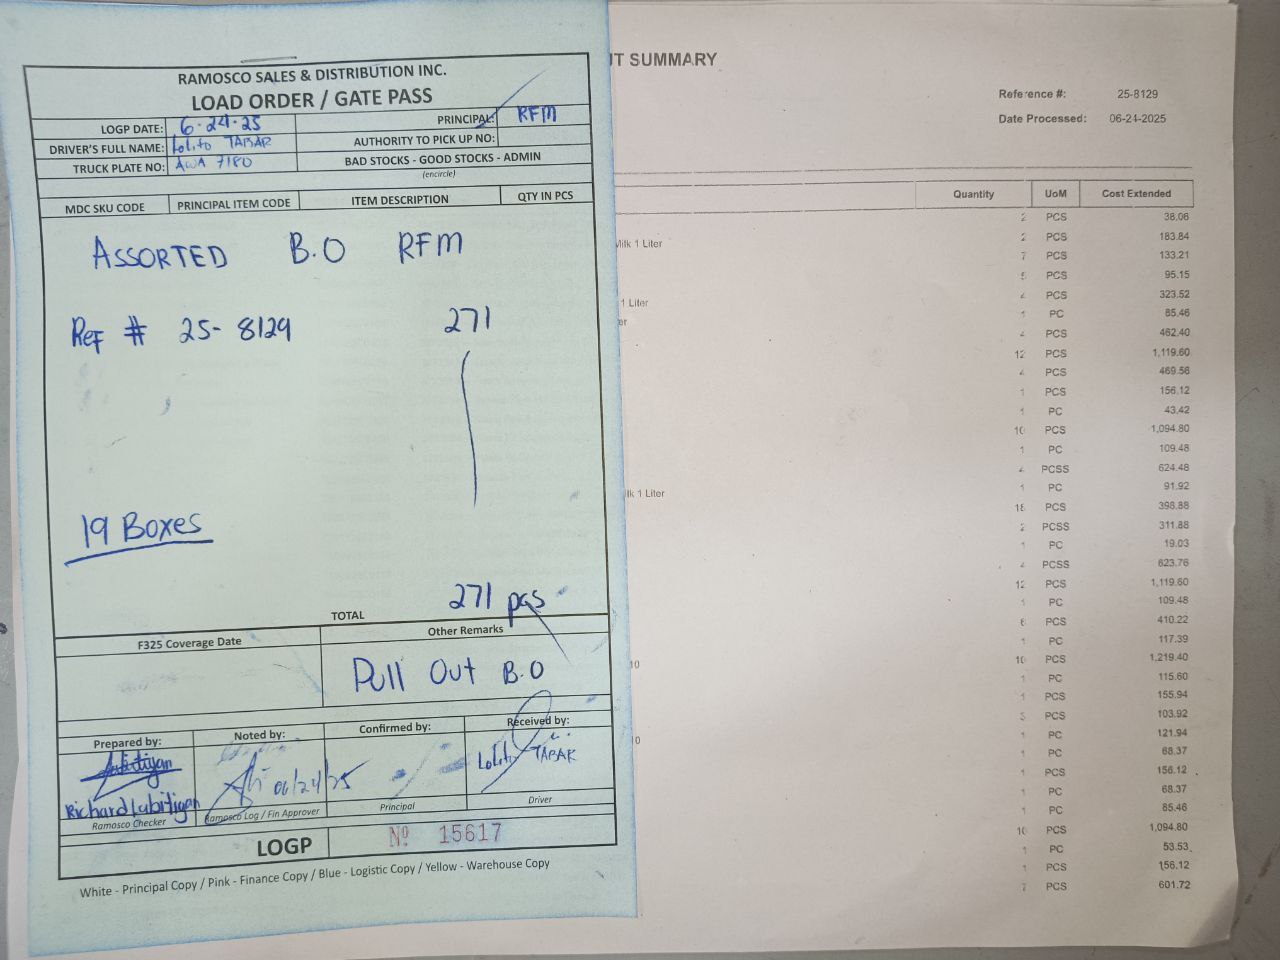 RAMOSCO SALES & DISTRIBUTION INC.
LOAD ORDER / GATE PASS
LOGP DATE: 6-24-25
PRINCIPAL: RFM
DRIVER'S FULL NAME: Lolito TABAR
AUTHORITY TO PICK UP NO:
TRUCK PLATE NO: AWA 7180
BAD STOCKS - GOOD STOCKS - ADMIN
(encircle)
MDC SKU CODE PRINCIPAL ITEM CODE ITEM DESCRIPTION QTY IN PCS
ASSORTED B.O RFM
Ref # 25-8129 271
19 Boxes
271 pcs
TOTAL
F325 Coverage Date Other Remarks
Pull Out B.O
Prepared by: Noted by: Confirmed by: Received by:
06/24/25 Lolito TABAR
Richard Lubitigan
Ramosco Checker Ramosco Log / Fin Approver Principal Driver
LOGP Nº 15617
White - Principal Copy / Pink - Finance Copy / Blue - Logistic Copy / Yellow - Warehouse Copy
SUMMARY
Reference #: 25-8129
Date Processed: 06-24-2025
Quantity UoM Cost Extended
2 PCS 38.06
Milk 1 Liter 2 PCS 183.84
7 PCS 133.21
5 PCS 95.15
1 Liter 4 PCS 323.52
er 1 PC 85.46
4 PCS 462.40
12 PCS 1,119.60
4 PCS 469.56
1 PCS 156.12
1 PC 43.42
10 PCS 1,094.80
1 PC 109.48
4 PCSS 624.48
lk 1 Liter 1 PC 91.92
18 PCS 398.88
2 PCSS 311.88
1 PC 19.03
4 PCSS 623.76
12 PCS 1,119.60
1 PC 109.48
6 PCS 410.22
1 PC 117.39
10 10 PCS 1,219.40
1 PC 115.60
1 PCS 155.94
PCS 103.92
10 1 PC 121.94
1 PC 68.37
1 PCS 156.12
1 PC 68.37
1 PC 85.46
10 PCS 1,094.80
1 PC 53.53
1 PCS 156.12
7 PCS 601.72